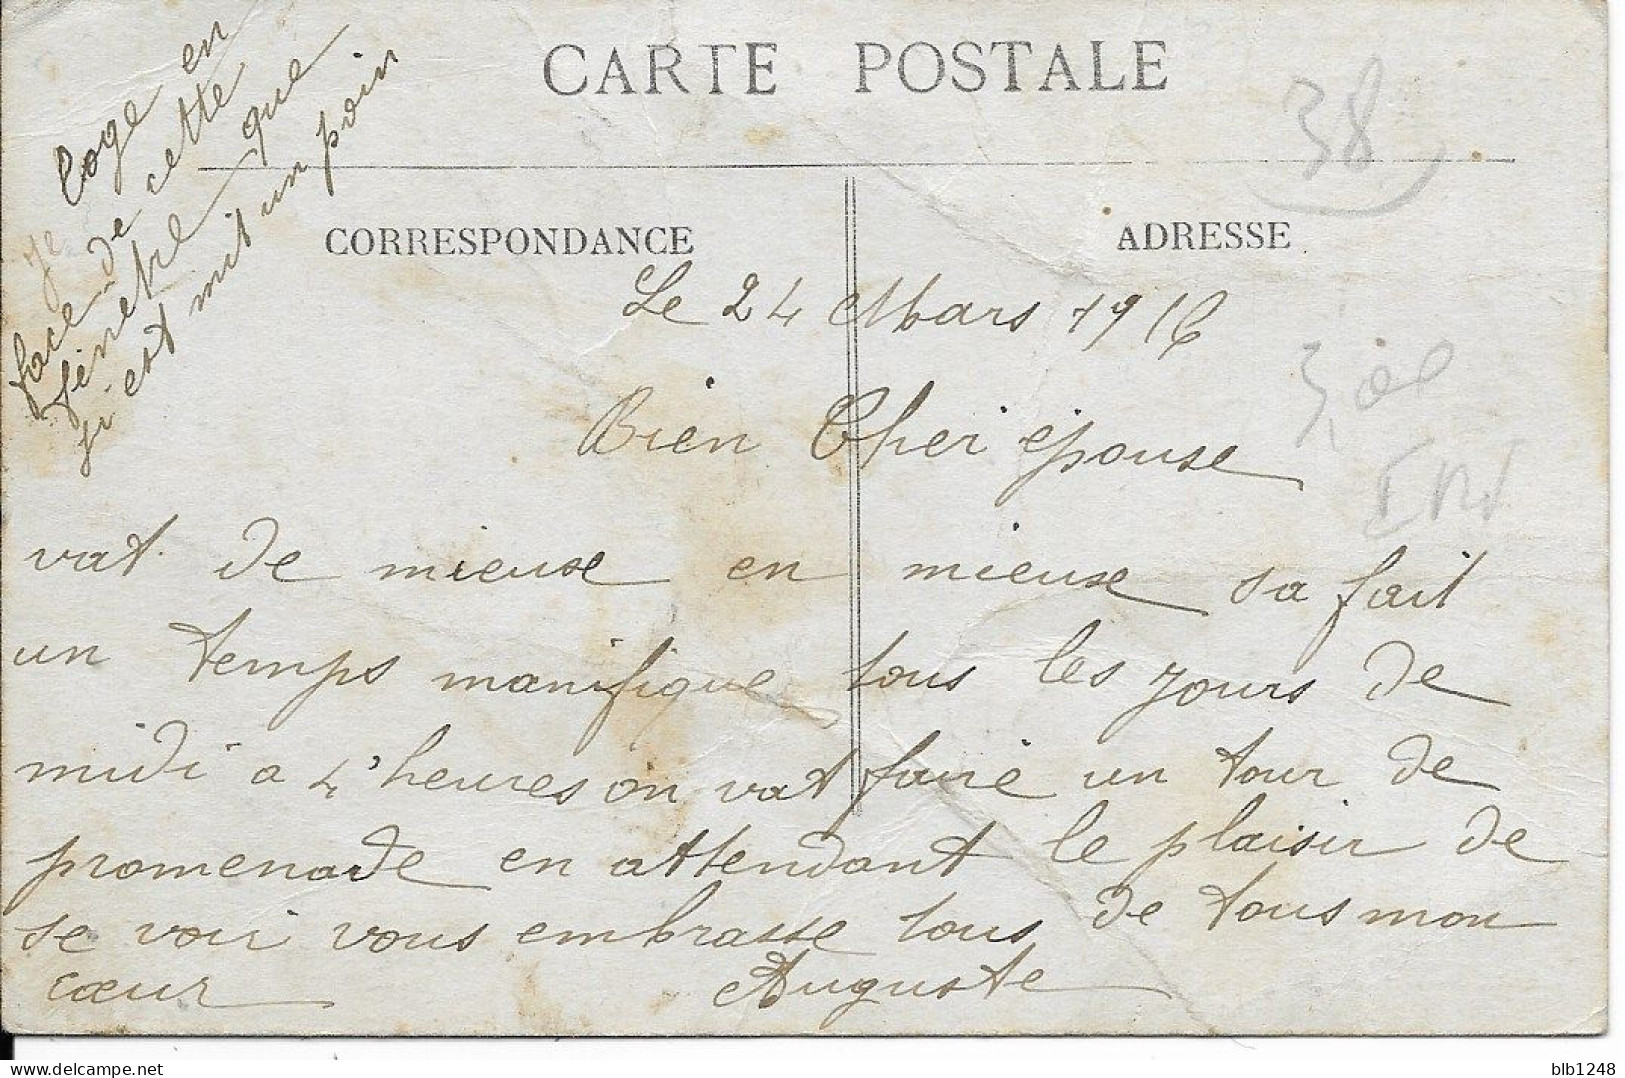 CARTE POSTALE
38
Je loge en
face de cette
fenetre que
ji est mit un poin
CORRESPONDANCE
ADRESSE
Le 24 Mars 1916
Bien Cher épouse
vat de mieuse en mieuse sa fait
un temps manifique tous les jours de
midi a 4'heures on vat faire un tour de
promenade en attendant le plaisir de
se voir vous embrasse tous de tous mon
cœur Auguste
blb1248